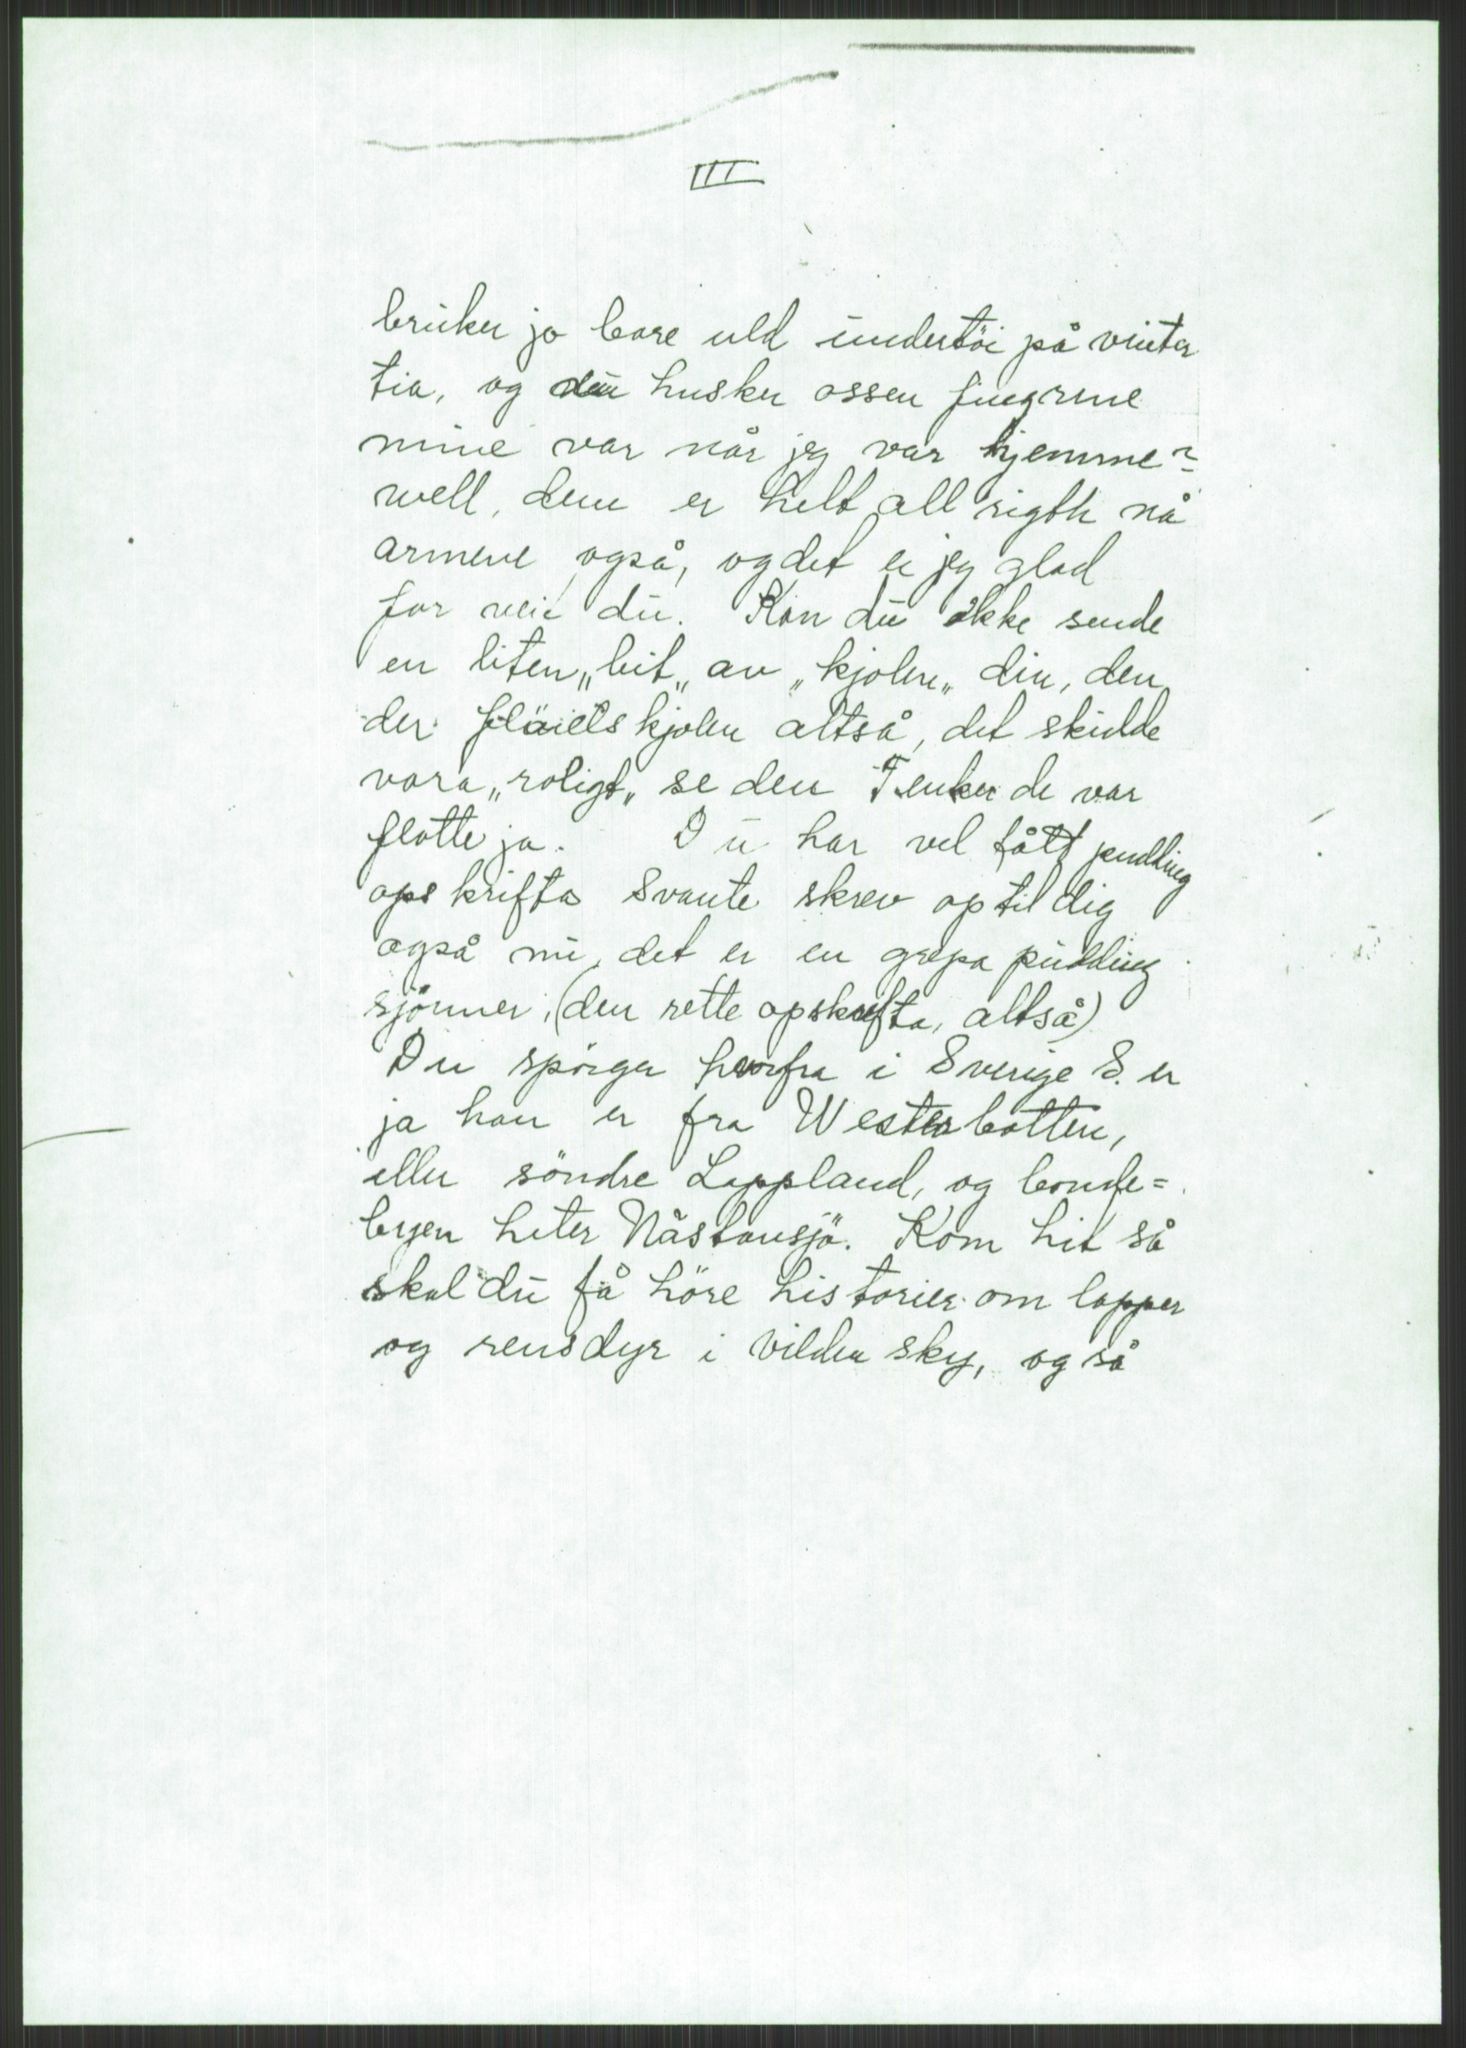 III
bruker jo bare uld undertöi på vinter
tia, og du husker ossen fingrene
mine var når jeg var hjemme?
well, dem er helt all rigth nå
armene også, og det er jeg glad
for vei du. Kan du ikke sende
en liten „bit„ av „kjolen„ din, den
der kjolen altså, det skulde
vara „roligt„ se den Tenker de var
flotte ja. Du har vel fått pudding
opskrifta Svante skrev op til dig
også nu, det er en grepa pudding
sjönner, (den rette opskrifta, altså)
Du spörger hvorfra i Sverige S. er
ja han er fra Westerbotten,
eller söndre Lappland, og bonde=
byen heter Nästansjö. Kom hit så
skal du få höre historier om lapper
og rensdyr i vilden sky, og så